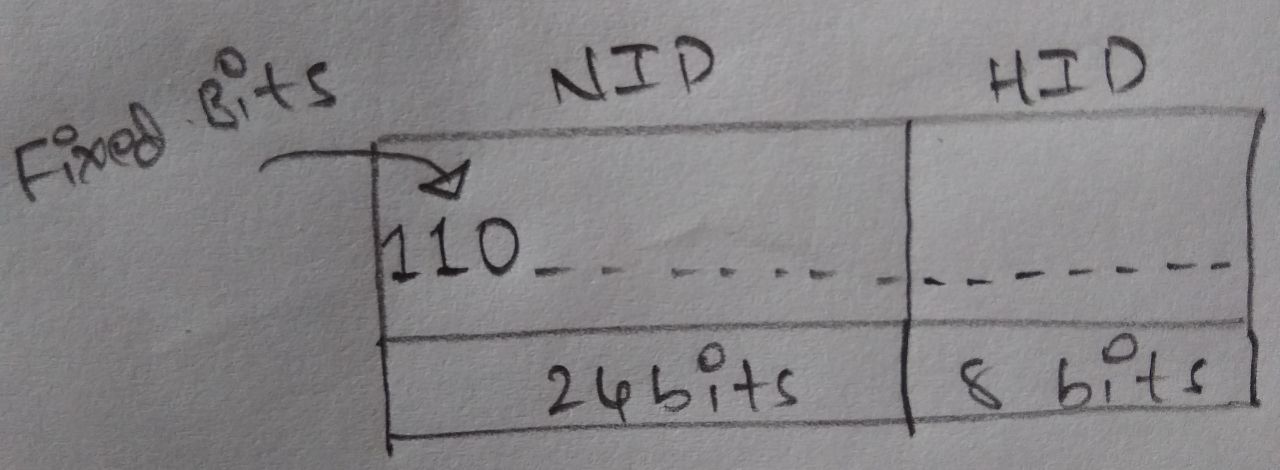 Fixed Bits
NID HID
110
24bits 8 bits